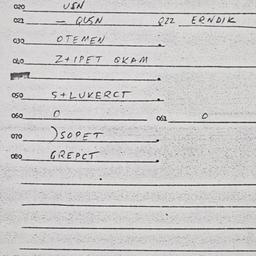 020 USN
021 - QUSN 022 ERNDIK
030 OTEMEN
040 Z+IPET GKAM
050 S+LUKERCT
060 O 061 O
070 )SOPET
080 GREPCT